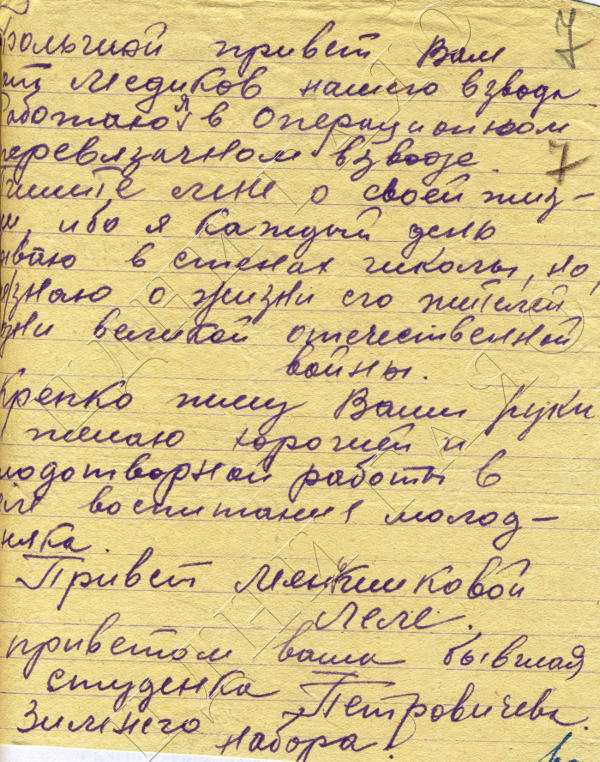 7
Большой привет Вам
от Медиков нашего взвода
Работаю я в Операционном
перевязачном взводе.
7
Пишите мне о своей жиз-
ни, ибо я каждый день
в стенах школы, но,
знаю о жизни его жителей
дни великой отечественной
войны.
Крепко жму Ваши руки
желаю хорошей и
плодотворной работы в
деле воспитания молод-
няка.
Привет Меньшиковой
Леле.
приветом ваша бывшая
студенка Петровичева.
Зимнего набора.